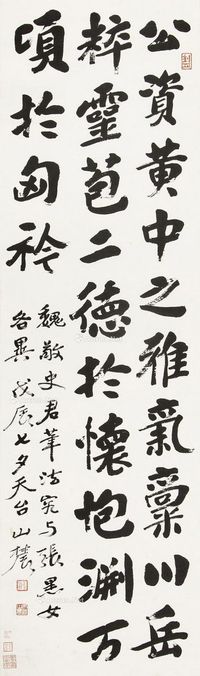 公資黃中之雅氣稟川岳
粹靈苞二德於懷抱淵万
頃於匈衿
魏敬史君筆法突与張黑女
各異戊辰七夕天台山農